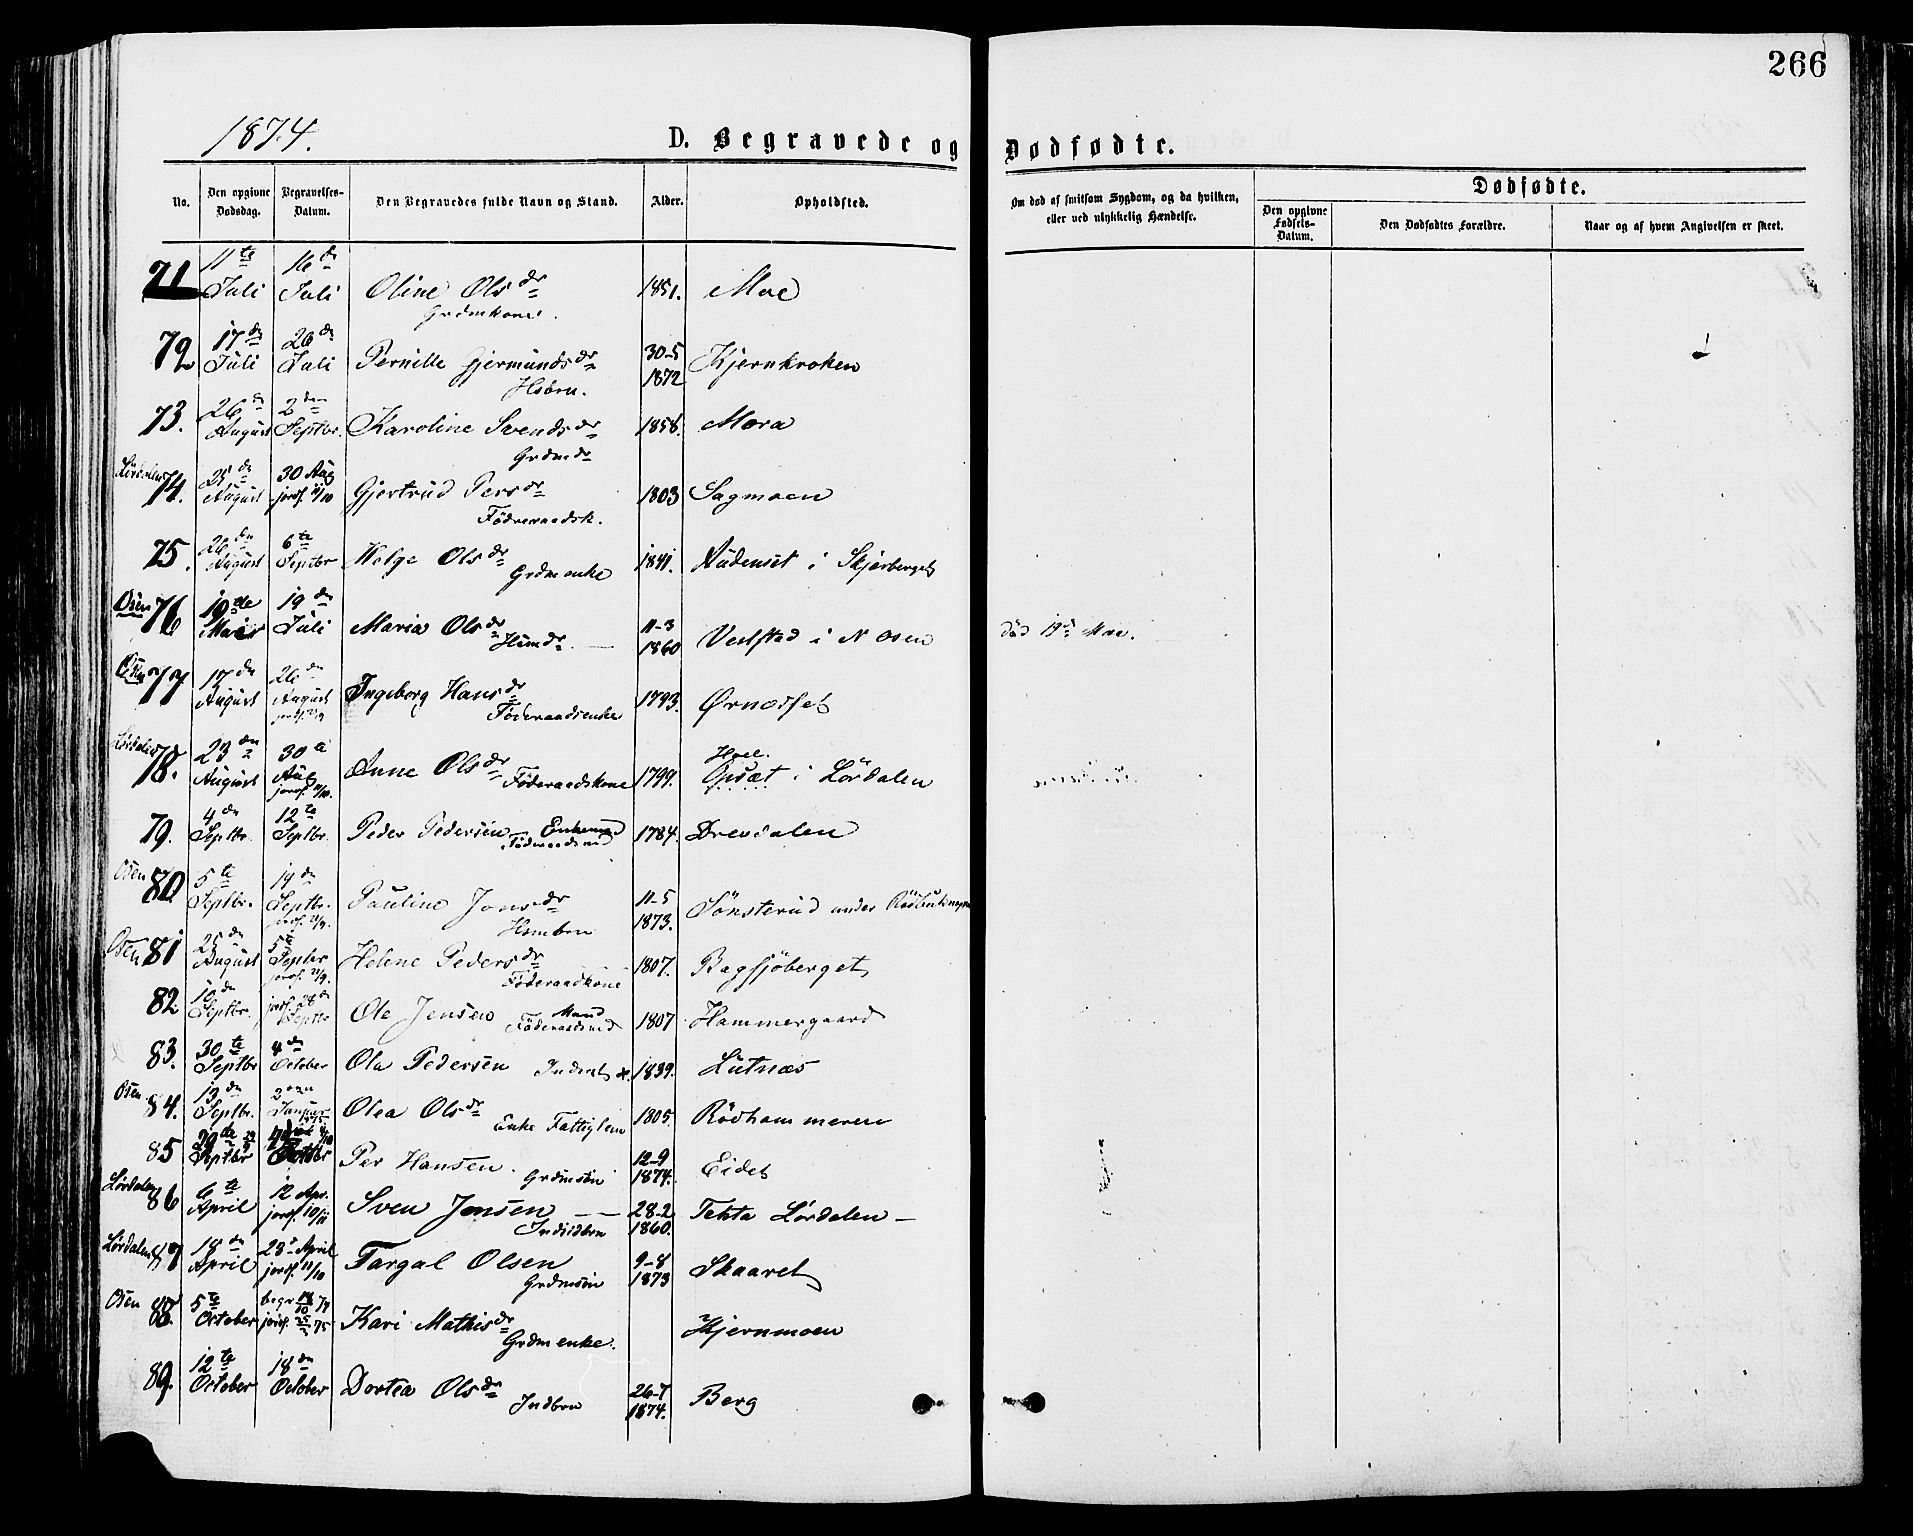 266
1874.
D. Begravede og Dødfødte.
No. Den opgivne Dødsdag. Begravelses-Datum. Den Begravedes fulde Navn og Stand. Alder. Opholdsted. Om død af smitsom Sygdom, og da hvilken, eller ved ulykkelig Hændelse. Dødfødte.
Den opgivne Fødsels-Datum. Den Dødfødtes Forældre. Naar og af hvem Angivelsen er skeet.
71 11te Juli 16de Juli Oline Olsdr Grdmkone. 1851. Moe
72 17de Juli 26de Juli Pernille Gjermundsdr Hsbrn. 30-5 1872 Kjernkroken
73. 26de August 2den Septbr. Karoline Svendsdr Grdmdr 1858. Mora
Lördalen 74. 25de August 30 Aug jordf. 11/10 Gjertrud Persdr Föderaadsk. 1803 Sagmoen
75. 26de August 6te Septbr Helge Olsdr Grdmenke 1841. i Skjærberget
Osen 76 19de Mai 19de Juli Maria Olsdr Husmdr. — 11-3 1860 Vestad i N Osen död 19de Mai.
Osen 77 17de August 26de August jordf. 21/9 Ingeborg Hansdr Föderaadsenke 1793. Ørnæsset
Lördalen 78. 23de August 30te Aug jordf. 11/10. Anne Olsdr Föderaadskone 1799. Hoel. Opsæt i Lördalen
79. 4de Septbr. 12te Septbr. Peder Pedersen Enkemand Föderaadsmd 1784. Drevdalen
Osen 80 5te Septbr. 19de Septbr. jordf. 21/9. Pauline Jonsdr Hsmbrn 11-5 1873. Sönsterud under
Osen 81 25de August 5te Septbr jordf. 21/9. Helene Pedersdr Föderaadkone 1807. Bagsjöberget
82 10de Septbr. jordf. 28de Septbr Ole Jensen Mand Föderaadsmd 1807 Hammergaard
83. 30te Septbr 4de October Ola Pedersen Inderst 1839. Lutnæs
Osen 84. 13de Septbr. 2den Januar Olea Olsdr Enke Fattiglem 1805. Rödhammeren
85 Septbr Octbr Per Hansen. Grdmsön 12-9 1874. Eidet
Lördalen 86 6te April 12 Apr. jordf. 10/11 Sven Jensen — — Indstbrn 28-2 1860. Tekta Lördalen —
Lördalen 87 18de April 23de April jordf. 11/10 Targal Olsen Grdmsön 9-8 1873 Skaaret
Osen 88. 5te October begr 18/10 74 jordf. 75 Kari Mathisdr Grdmenke. Kjernmoen
89. 12te October 18de October Dortea Olsdr Indbrn 26-7 1874. Berg